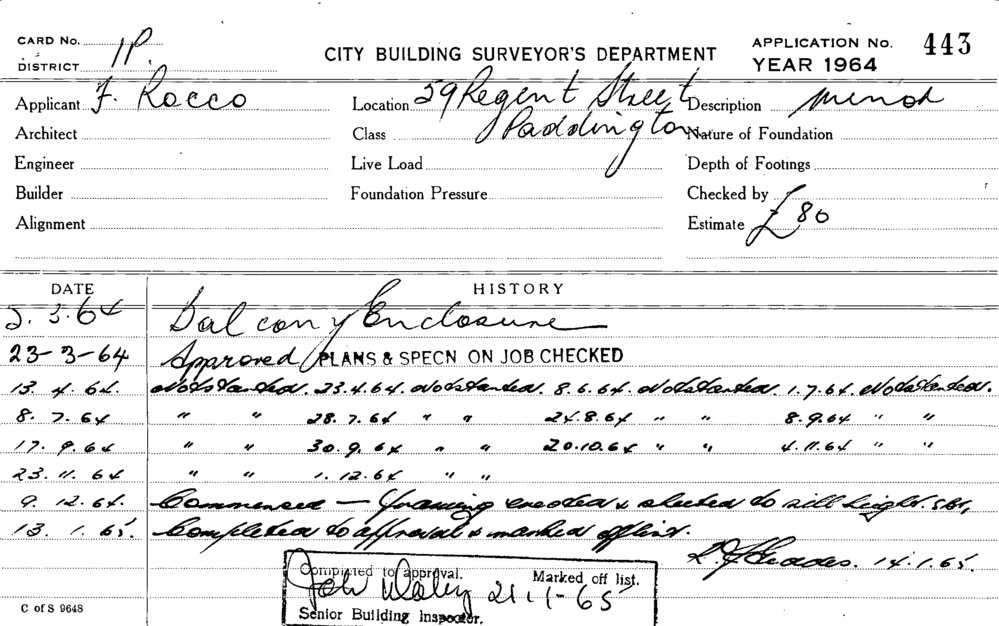 CARD No. 1P.
DISTRICT
CITY BUILDING SURVEYOR'S DEPARTMENT
APPLICATION No. 443
YEAR 1964
Applicant F. Rocco
Location 59 Regent Street
Paddington
Description minor
Architect
Class
Nature of Foundation
Engineer
Live Load
Depth of Footings
Builder
Foundation Pressure
Checked by
Alignment
Estimate £80
DATE HISTORY
2. 3. 64 Balcony Enclosure
23-3-64 Approved PLANS & SPECN ON JOB CHECKED
13. 4. 64. Not started. 23.4.64. Not started. 8.6.64. Not started. 1.7.64. Not started.
8. 7. 64 " " 28. 7. 64 " " 24.8.64 " " 8.9.64 " "
17. 9. 64 " " 30. 9. 64 " " 20.10.64 " " 4.11.64 " "
23. 11. 64 " " 1. 12. 64 " "
9. 12. 64. Commenced — Framing erected & sheeted to sill height.
13. 1. 65. Completed to approval & marked off list.
14.1.65.
Completed to approval. Marked off list.
21-1-65
Senior Building Inspector.
C of S 9648